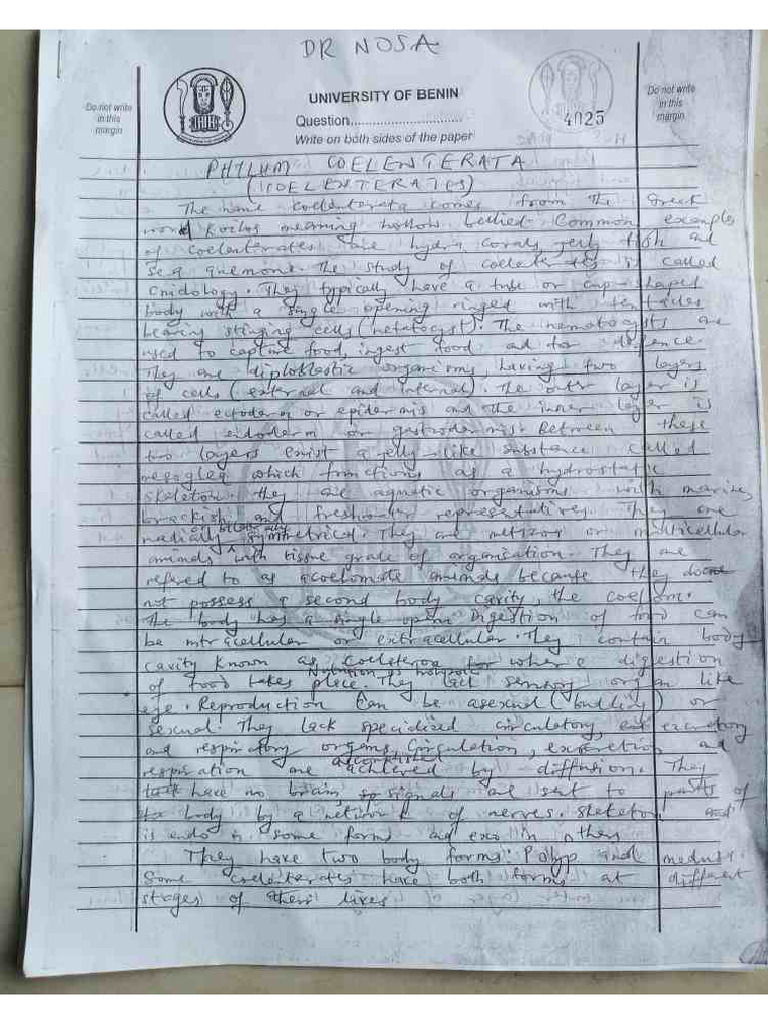 DR NOSA
Do not write
in this
margin
UNIVERSITY OF BENIN
Question
Write on both sides of the paper
4025
Do not write
in this
margin
PHYLUM COELENTERATA
(COELENTERATES)
The name Coelenterata comes from the Greek
word Koilos meaning hollow bellied. Common examples
of coelenterates are hydra, corals, jelly fish and
sea anemone. The study of is called
Cnidology. They typically have a tube or cup-shaped
body with a single opening ringed with tentacles
bearing stinging cells (netatocyst). The nematocysts are
used to capture food, ingest food and for defence.
They are diploblastic organisms, having two layers
of cells (external and internal). The outer layer is
called ectoderm or epidermis and the inner layer is
called endoderm or gastrodermis. Between these
two layers exist a jelly-like substance called
mesoglea which functions as a hydrostatic
skeleton. They are aquatic organisms with marine,
brackish and freshwater representatives. They are
radially symmetrical. They are metazoa or multicellular
animals with tissue grade of organization. They are
refered to as acoelomate animals because they do
not possess a second body cavity, the coelom.
The body has a single Digestion of food can
be intracellular or extracellular. They contain body
cavity known as where digestion
Nutrition is
of food takes place. They lack sensory organ like
eye. Reproduction can be asexual (budding) or
sexual. They lack specialized circulatory, excretory
and respiratory organs, Circulation, excretion and
accomplished
respiration are achieved by diffusion. They
have no brain, so signals are sent to parts of
body by a network of nerves. Skeleton
is endo in some forms and exo in others
They have two body forms: Polyp and medusa.
Some coelenterates have both forms at different
stages of their lives